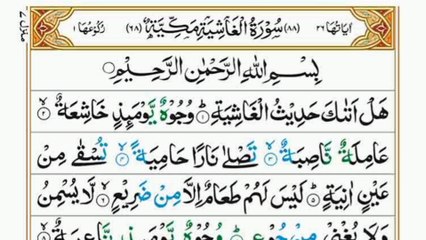 اٰيَاتُهَا ٢٦ (٨٨) سُوْرَةُ الْغَاشِيَةِ مَكِّيَّةٌ (٦٨) رُكُوْعُهَا ١
بِسْمِ اللّٰهِ الرَّحْمٰنِ الرَّحِيْمِ
هَلْ اَتٰىكَ حَدِيْثُ الْغَاشِيَةِ ۞ؕ١ وُجُوْهٌ يَّوْمَىِٕذٍ خَاشِعَةٌ ۙ٢
عَامِلَةٌ نَّاصِبَةٌ ۙ٣ تَصْلٰى نَارًا حَامِيَةً ۙ٤ تُسْقٰى مِنْ
عَيْنٍ اٰنِيَةٍ ؕ٥ لَيْسَ لَهُمْ طَعَامٌ اِلَّا مِنْ ضَرِيْعٍ ۙ٦ لَّا يُسْمِنُ
وَلَا يُغْنِيْ مِنْ جُوْعٍ ؕ٧ وُجُوْهٌ يَّوْمَىِٕذٍ نَّاعِمَةٌ ۙ٨